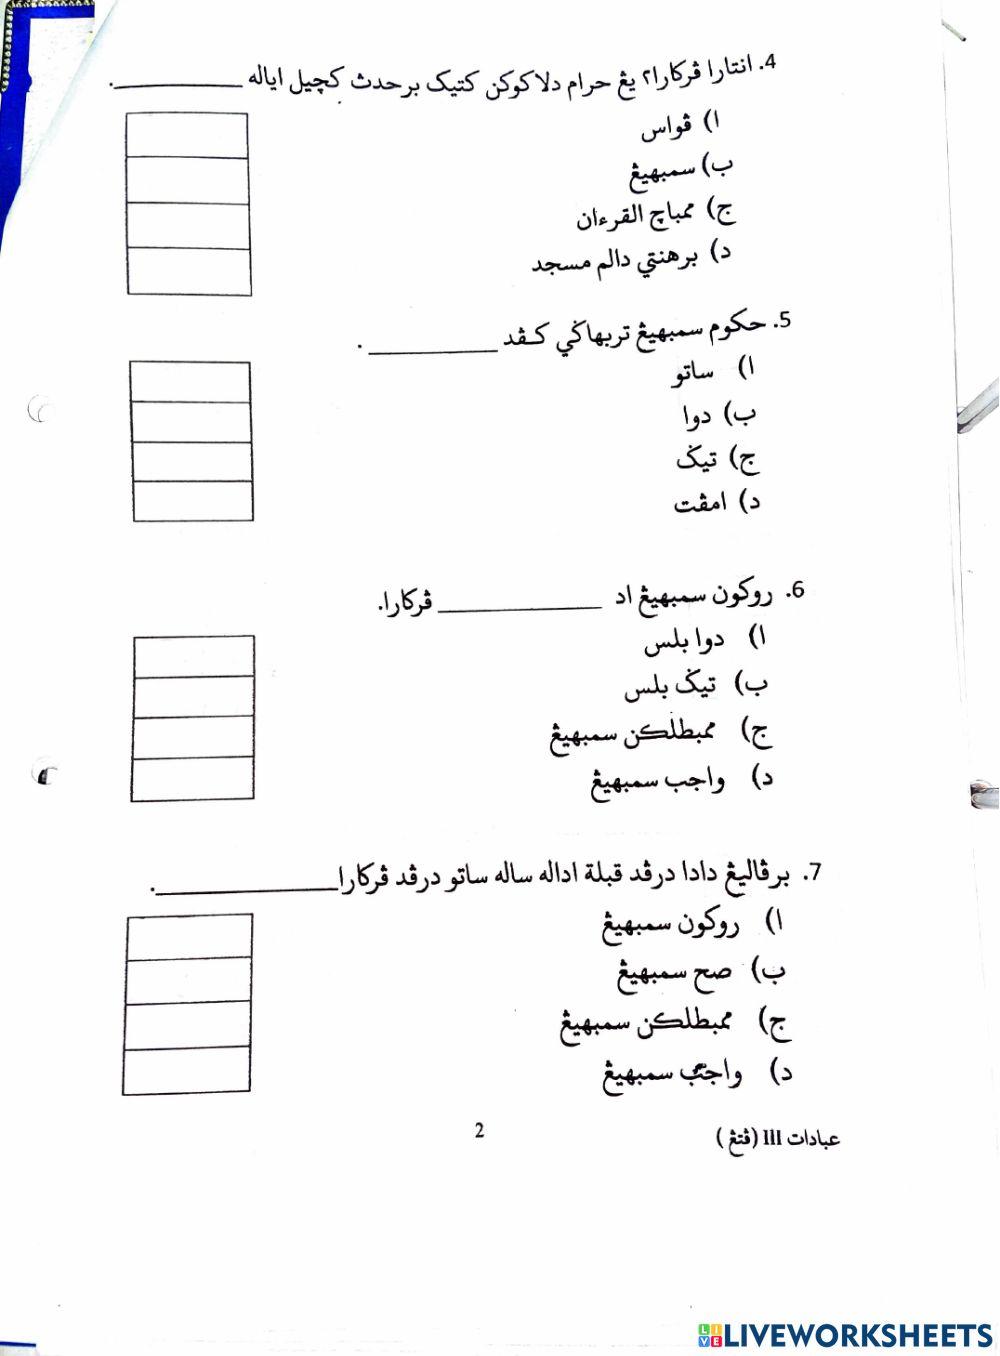 4. انتارا ڤركارا٢ يڠ حرام دلاكوكن كتيک برحدث كچيل اياله ____________.
ا) ڤواس
ب) سمبهيڠ
ج) ممباچ القرءان
د) برهنتي دالم مسجد
5. حكوم سمبهيڠ تربهاݢي كڤد ____________.
ا) ساتو
ب) دوا
ج) تيݢ
د) امڤت
6. روكون سمبهيڠ اد ____________ ڤركارا.
ا) دوا بلس
ب) تيݢ بلس
ج) ممبطلكن سمبهيڠ
د) واجب سمبهيڠ
7. برڤاليڠ دادا درڤد قبلة اداله ساله ساتو درڤد ڤركارا____________.
ا) روكون سمبهيڠ
ب) صح سمبهيڠ
ج) ممبطلكن سمبهيڠ
د) واجب سمبهيڠ
2
عبادات III (ڤتڠ)
LIVEWORKSHEETS